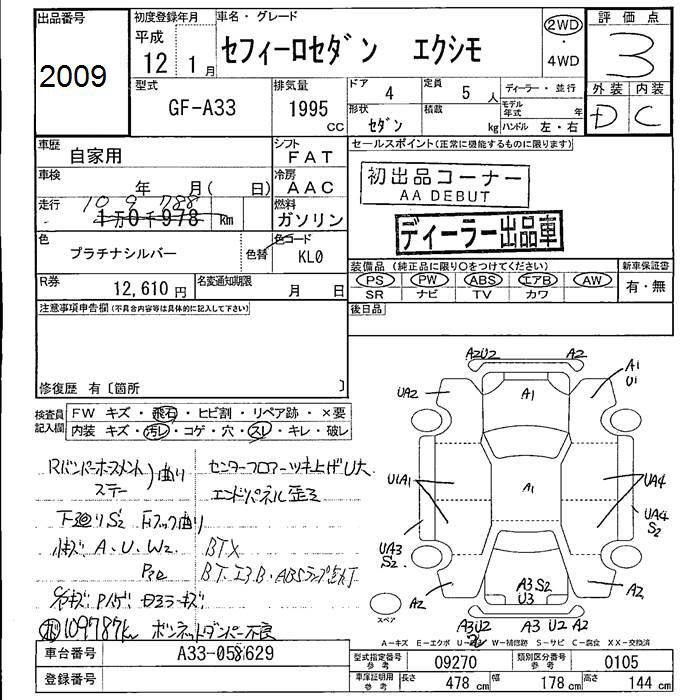 出品番号
2009
初度登録年月
平成
12年 1月
車名・グレード
セフィーロセダン エクシモ
2WD
・
4WD
評価点
3
外装 内装
D C
型式
GF-A33
排気量
1995
CC
ドア
4
定員
5 人
ディーラー・並行
形状
セダン
積載
kg
モデル年式 年
ハンドル 左・右
車歴
自家用
シフト
FAT
車検
年 月( 日)
冷房
AAC
走行
109788
1万0千978 km
燃料
ガソリン
色
プラチナシルバー
色替
色コード
KL0
R券
12,610 円
名変通知期限
月 日
セールスポイント(正常に機能するものに限ります)
初出品コーナー
AA DEBUT
ディーラー出品車
装備品 (純正品に限り○をつけてください)
PS PW ABS エアB AW
SR ナビ TV カワ
新車保証書
有・無
注意事項申告欄(不具合内容等は具体的に記入して下さい)
後日品
修復歴 有〔箇所 〕
検査員記入欄
FW キズ・飛石・ヒビ割・リペア跡・×要
内装 キズ・汚レ・コゲ・穴・スレ・キレ・破レ
Rバンパーホースメント
ステー
)曲り
センターフロアーツキ上げU大
エンドパネル歪ミ
下廻りS2 Fフック曲り
A、U、W2、
BTX
P2e
BT、エアB・ABSランプ点灯
109787km ボンネットダンパー不良
A2U2 A2
UA2 A1 A1
U1
U1A1 A1 UA4
UA4
S2
UA3
S2
A3S2
U3
A2 A2
スペア
A3U2 A3 U2
A-キズ E-エクボ U-凹ミ W-補修跡 S-サビ C-腐食 XX-交換済
車台番号
A33-058629
登録番号
型式指定番号
参考
09270
類別区分番号
参考
0105
車保証明用
参考
長さ 478 cm
幅 178 cm
高さ 144 cm